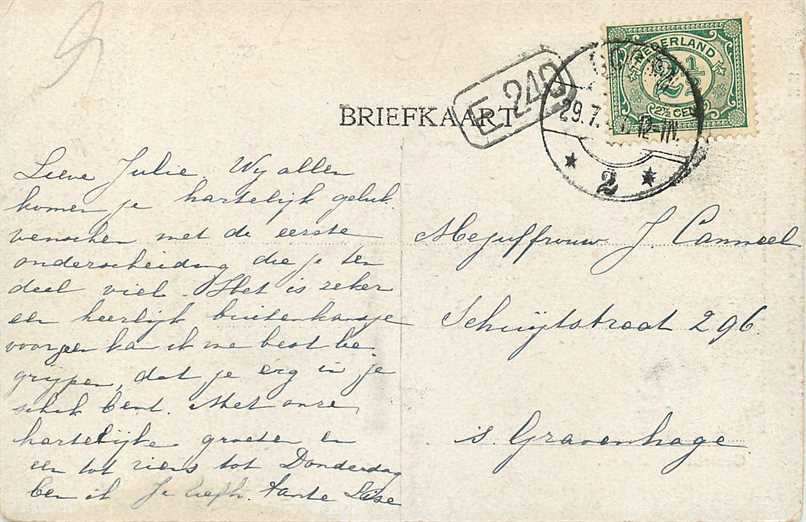 BRIEFKAART
E 243
NEDERLAND
2½
2½ CENT
29.7. 12-1N.
2
Lieve Julie. Wij allen
komen je hartelijk geluk
wenschen met de eerste
onderscheiding die je ten
deel viel. Het is zeker
een heerlijk buitenkansje
voor jou kan ik me best be
grijpen, dat je erg in je
schik bent. Met onze
hartelijke groeten en
een tot ziens tot Donderdag
ben ik Je liefh. tante Lise
Mejuffrouw J. Canneel
Schuijtstraat 296.
's Gravenhage